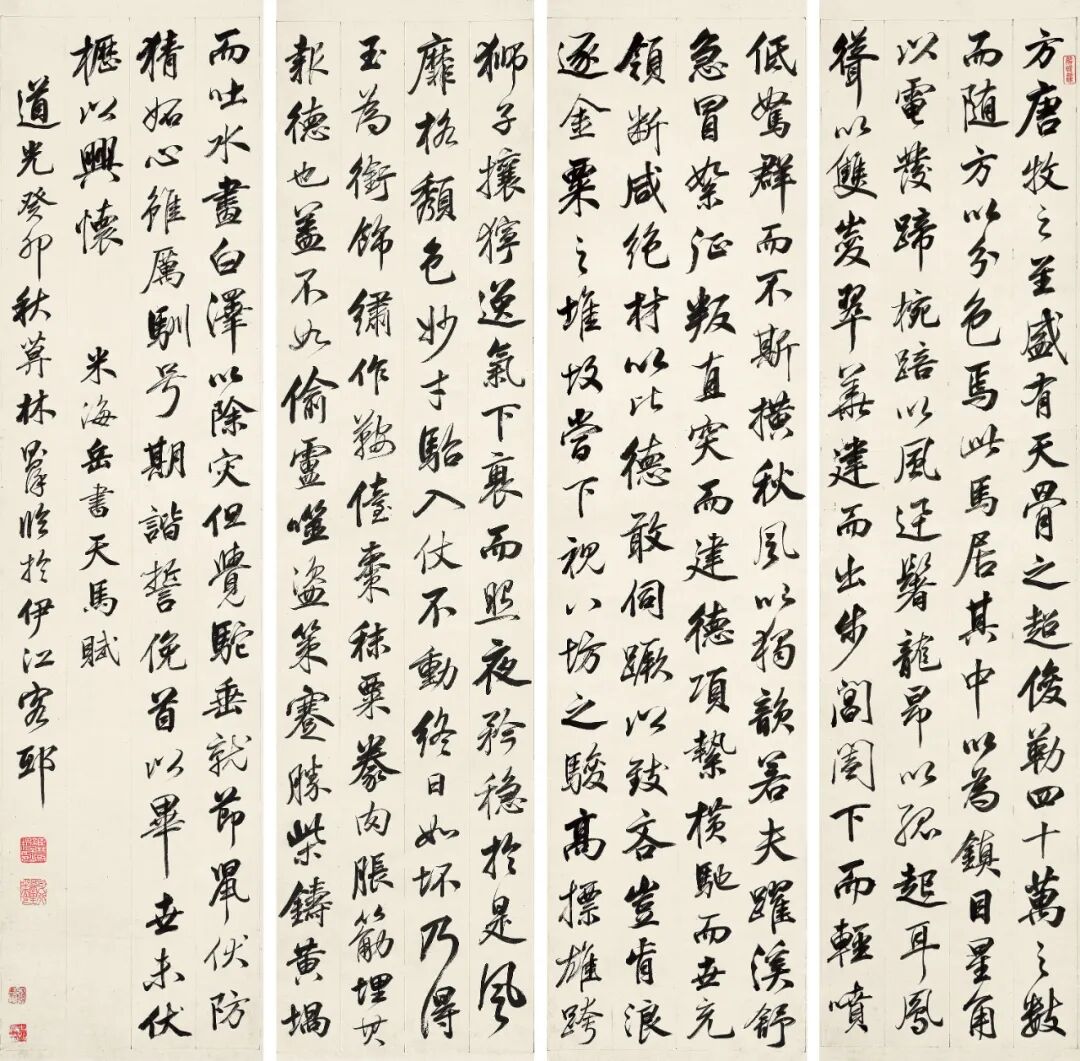 方唐牧之至盛有天骨之超俊勒四十萬之數
而随方以分色焉此馬居其中以為鎮目星角
以電發蹄椀踣以風迅鬐龍昂以孤起耳鳳
聳以雙峻翠華建而出步閶闔下而輕噴
低駑群而不斯橫秋風以獨韻若夫躍溪舒
急冒絮征叛直突而建德項縶橫馳而世充
領断咸絶材以比德敢伺蹶以致吝豈肯浪
逐金粟之堆故當下視八坊之駿高摽雄跨
獅子攘獰逸氣下衰而照夜矜穩於是風
靡格頹色妙才駘入仗不動終日如坏乃得
玉為銜飾繡作鞍儓棗秣粟豢肉脹筋埋其
報德也盖不如偷盧噬盗策蹇勝柴鑄黄堝
而吐水畫白澤以除灾但覺駝垂就節鼠伏防
猜妬心雖厲馴号期諧誓俛首以畢世未伏
櫪以興懷 米海岳書天馬賦
道光癸卯秋莫林則徐臨於伊江客邸